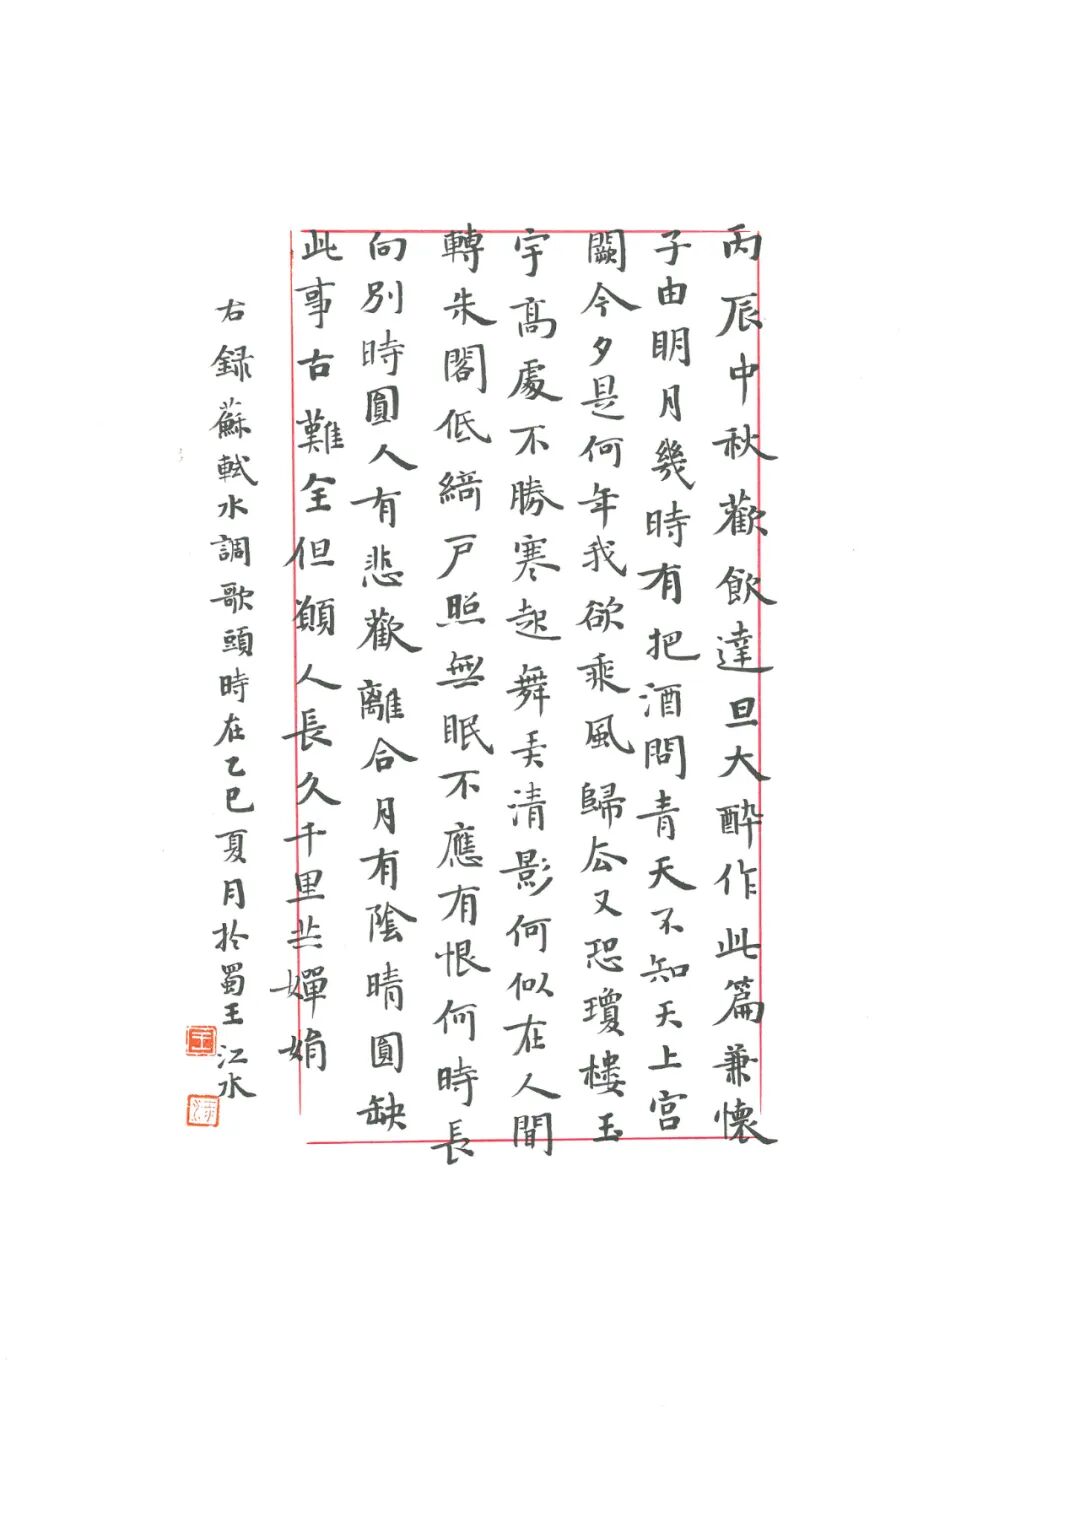 丙辰中秋歡飲達旦大醉作此篇兼懷
子由明月幾時有把酒問青天不知天上宮
闕今夕是何年我欲乘風歸去又恐瓊樓玉
宇高處不勝寒起舞弄清影何似在人間
轉朱閣低綺戶照無眠不應有恨何時長
向別時圓人有悲歡離合月有陰晴圓缺
此事古難全但願人長久千里共嬋娟
右録蘇軾水調歌頭時在乙巳夏月於蜀王江水
王